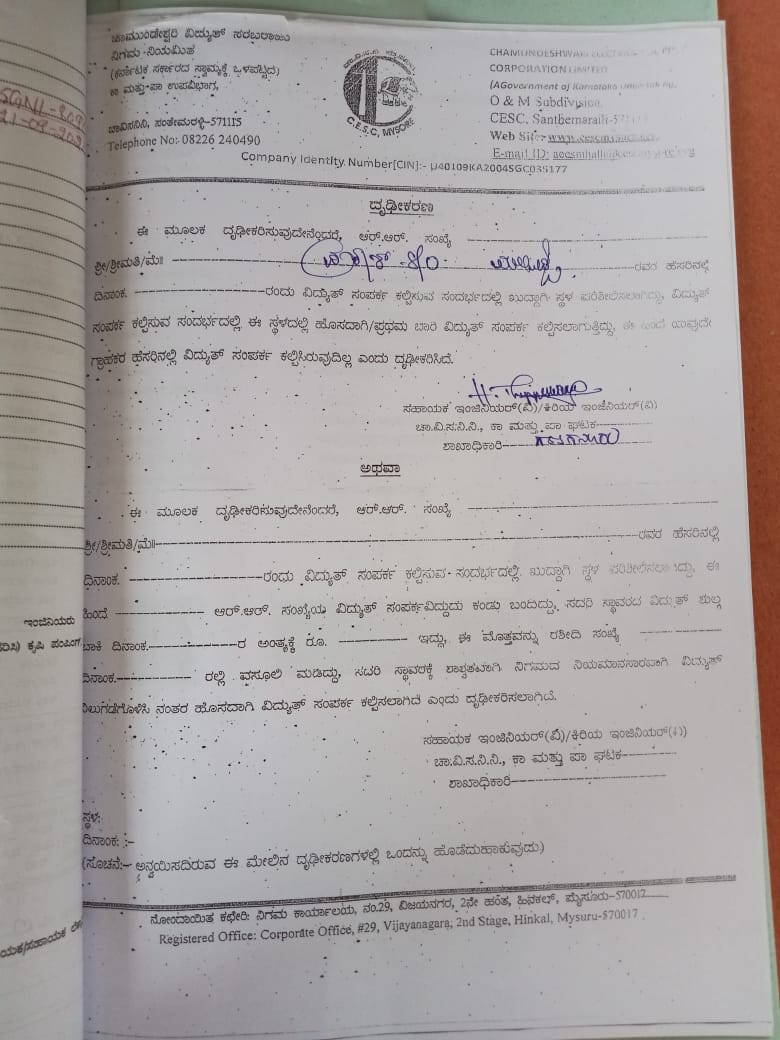 ಚಾಮುಂಡೇಶ್ವರಿ ವಿದ್ಯುತ್ ಸರಬರಾಜು
ನಿಗಮ-ನಿಯಮಿತ
(ಕರ್ನಾಟಕ ಸರ್ಕಾರದ ಸ್ವಾಮ್ಯಕ್ಕೆ ಒಳಪಟ್ಟಿದೆ)
ಕಾ ಮತ್ತು-ಪಾ ಉಪವಿಭಾಗ,
ಚಾವಿಸನಿನಿ, ಸಂತೇಮರಳ್ಳಿ-571115
Telephone No: 08226 240490
C.E.S.C, MYSORE
CHAMUNDESHWARI
CORPORATION LIMITED
(AGovernment of Karnataka
O & M Subdivision
CESC, Santhemaralli-571115
Web Site:- www.
E-mail ID:
Company Identity Number[CIN]:- U40109KA2004SGC035177
ದೃಢೀಕರಣ
ಈ ಮೂಲಕ ದೃಢೀಕರಿಸುವುದೇನೆಂದರೆ, ಆರ್.ಆರ್. ಸಂಖ್ಯೆ
ಶ್ರೀ/ಶ್ರೀಮತಿ/ಮೆ॥ ರವರ ಹೆಸರಿನಲ್ಲಿ
ದಿನಾಂಕ. ರಂದು ವಿದ್ಯುತ್ ಸಂಪರ್ಕ ಕಲ್ಪಿಸುವ ಸಂದರ್ಭದಲ್ಲಿ ಖುದ್ದಾಗಿ ಸ್ಥಳ ಪರಿಶೀಲಿಸಲಾಗಿದ್ದು, ವಿದ್ಯುತ್
ಸಂಪರ್ಕ ಕಲ್ಪಿಸುವ ಸಂದರ್ಭದಲ್ಲಿ ಈ ಸ್ಥಳದಲ್ಲಿ ಹೊಸದಾಗಿ/ಪ್ರಥಮ ಬಾರಿ ವಿದ್ಯುತ್ ಸಂಪರ್ಕ ಕಲ್ಪಿಸಲಾಗುತ್ತಿದ್ದು, ಈ ಹಿಂದೆ ಯಾವುದೇ
ಗ್ರಾಹಕರ ಹೆಸರಿನಲ್ಲಿ ವಿದ್ಯುತ್ ಸಂಪರ್ಕ ಕಲ್ಪಿಸಿರುವುದಿಲ್ಲ ಎಂದು ದೃಢೀಕರಿಸಿದೆ.
ಸಹಾಯಕ ಇಂಜಿನಿಯರ್(ವಿ)/ಕಿರಿಯ ಇಂಜಿನಿಯರ್(ವಿ)
ಚಾ.ವಿ.ಸ.ನಿ.ನಿ., ಕಾ ಮತ್ತು ಪಾ ಘಟಕ
ಶಾಖಾಧಿಕಾರಿ
ಅಥವಾ
ಈ ಮೂಲಕ ದೃಢೀಕರಿಸುವುದೇನೆಂದರೆ, ಆರ್.ಆರ್. ಸಂಖ್ಯೆ
ಶ್ರೀ/ಶ್ರೀಮತಿ/ಮೆ॥ ರವರ ಹೆಸರಿನಲ್ಲಿ
ದಿನಾಂಕ. ರಂದು ವಿದ್ಯುತ್ ಸಂಪರ್ಕ ಕಲ್ಪಿಸುವ ಸಂದರ್ಭದಲ್ಲಿ ಖುದ್ದಾಗಿ ಸ್ಥಳ ಪರಿಶೀಲಿಸಲಾಗಿದ್ದು, ಈ
ಹಿಂದೆ ಆರ್.ಆರ್. ಸಂಖ್ಯೆಯ ವಿದ್ಯುತ್ ಸಂಪರ್ಕವಿದ್ದುದು ಕಂಡು ಬಂದಿದ್ದು, ಸದರಿ ಸ್ಥಾವರದ ವಿದ್ಯುತ್ ಶುಲ್ಕ
ಬಾಕಿ ದಿನಾಂಕ. ರ ಅಂತ್ಯಕ್ಕೆ ರೂ. ಇದ್ದು, ಈ ಮೊತ್ತವನ್ನು ರಶೀದಿ ಸಂಖ್ಯೆ
ದಿನಾಂಕ. ರಲ್ಲಿ ವಸೂಲಿ ಮಾಡಿದ್ದು, ಸದರಿ ಸ್ಥಾವರಕ್ಕೆ ಶಾಶ್ವತವಾಗಿ ನಿಗಮದ ನಿಯಮಾನುಸಾರವಾಗಿ ವಿದ್ಯುತ್
ನಿಲುಗಡೆಗೊಳಿಸಿ ನಂತರ ಹೊಸದಾಗಿ ವಿದ್ಯುತ್ ಸಂಪರ್ಕ ಕಲ್ಪಿಸಲಾಗಿದೆ ಎಂದು ದೃಢೀಕರಿಸಲಾಗಿದೆ.
ಸಹಾಯಕ ಇಂಜಿನಿಯರ್(ವಿ)/ಕಿರಿಯ ಇಂಜಿನಿಯರ್(ವಿ)
ಚಾ.ವಿ.ಸ.ನಿ.ನಿ., ಕಾ ಮತ್ತು ಪಾ ಘಟಕ
ಶಾಖಾಧಿಕಾರಿ
ಸ್ಥಳ:
ದಿನಾಂಕ: :-
(ಸೂಚನೆ:- ಅನ್ವಯಿಸದಿರುವ ಈ ಮೇಲಿನ ದೃಢೀಕರಣಗಳಲ್ಲಿ ಒಂದನ್ನು ಹೊಡೆದುಹಾಕುವುದು)
ನೋಂದಾಯಿತ ಕಛೇರಿ: ನಿಗಮ ಕಾರ್ಯಾಲಯ, ನಂ.29, ವಿಜಯನಗರ, 2ನೇ ಹಂತ, ಹಿನಕಲ್, ಮೈಸೂರು-570017
Registered Office: Corporate Office, #29, Vijayanagara, 2nd Stage, Hinkal, Mysuru-570017
ಇಂಜಿನಿಯರು
ಕೃಷಿ ಪಂಪಿಂಗ್